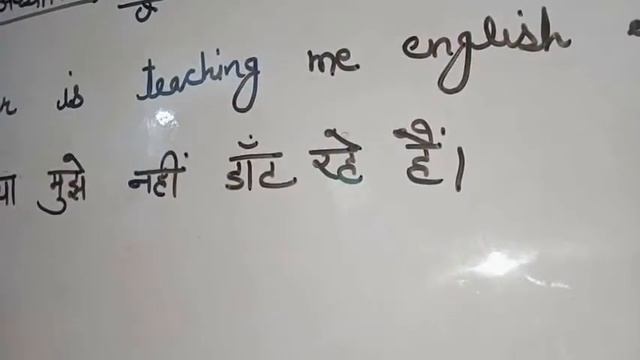 is teaching me english
मुझे नहीं डाँट रहे हैं।